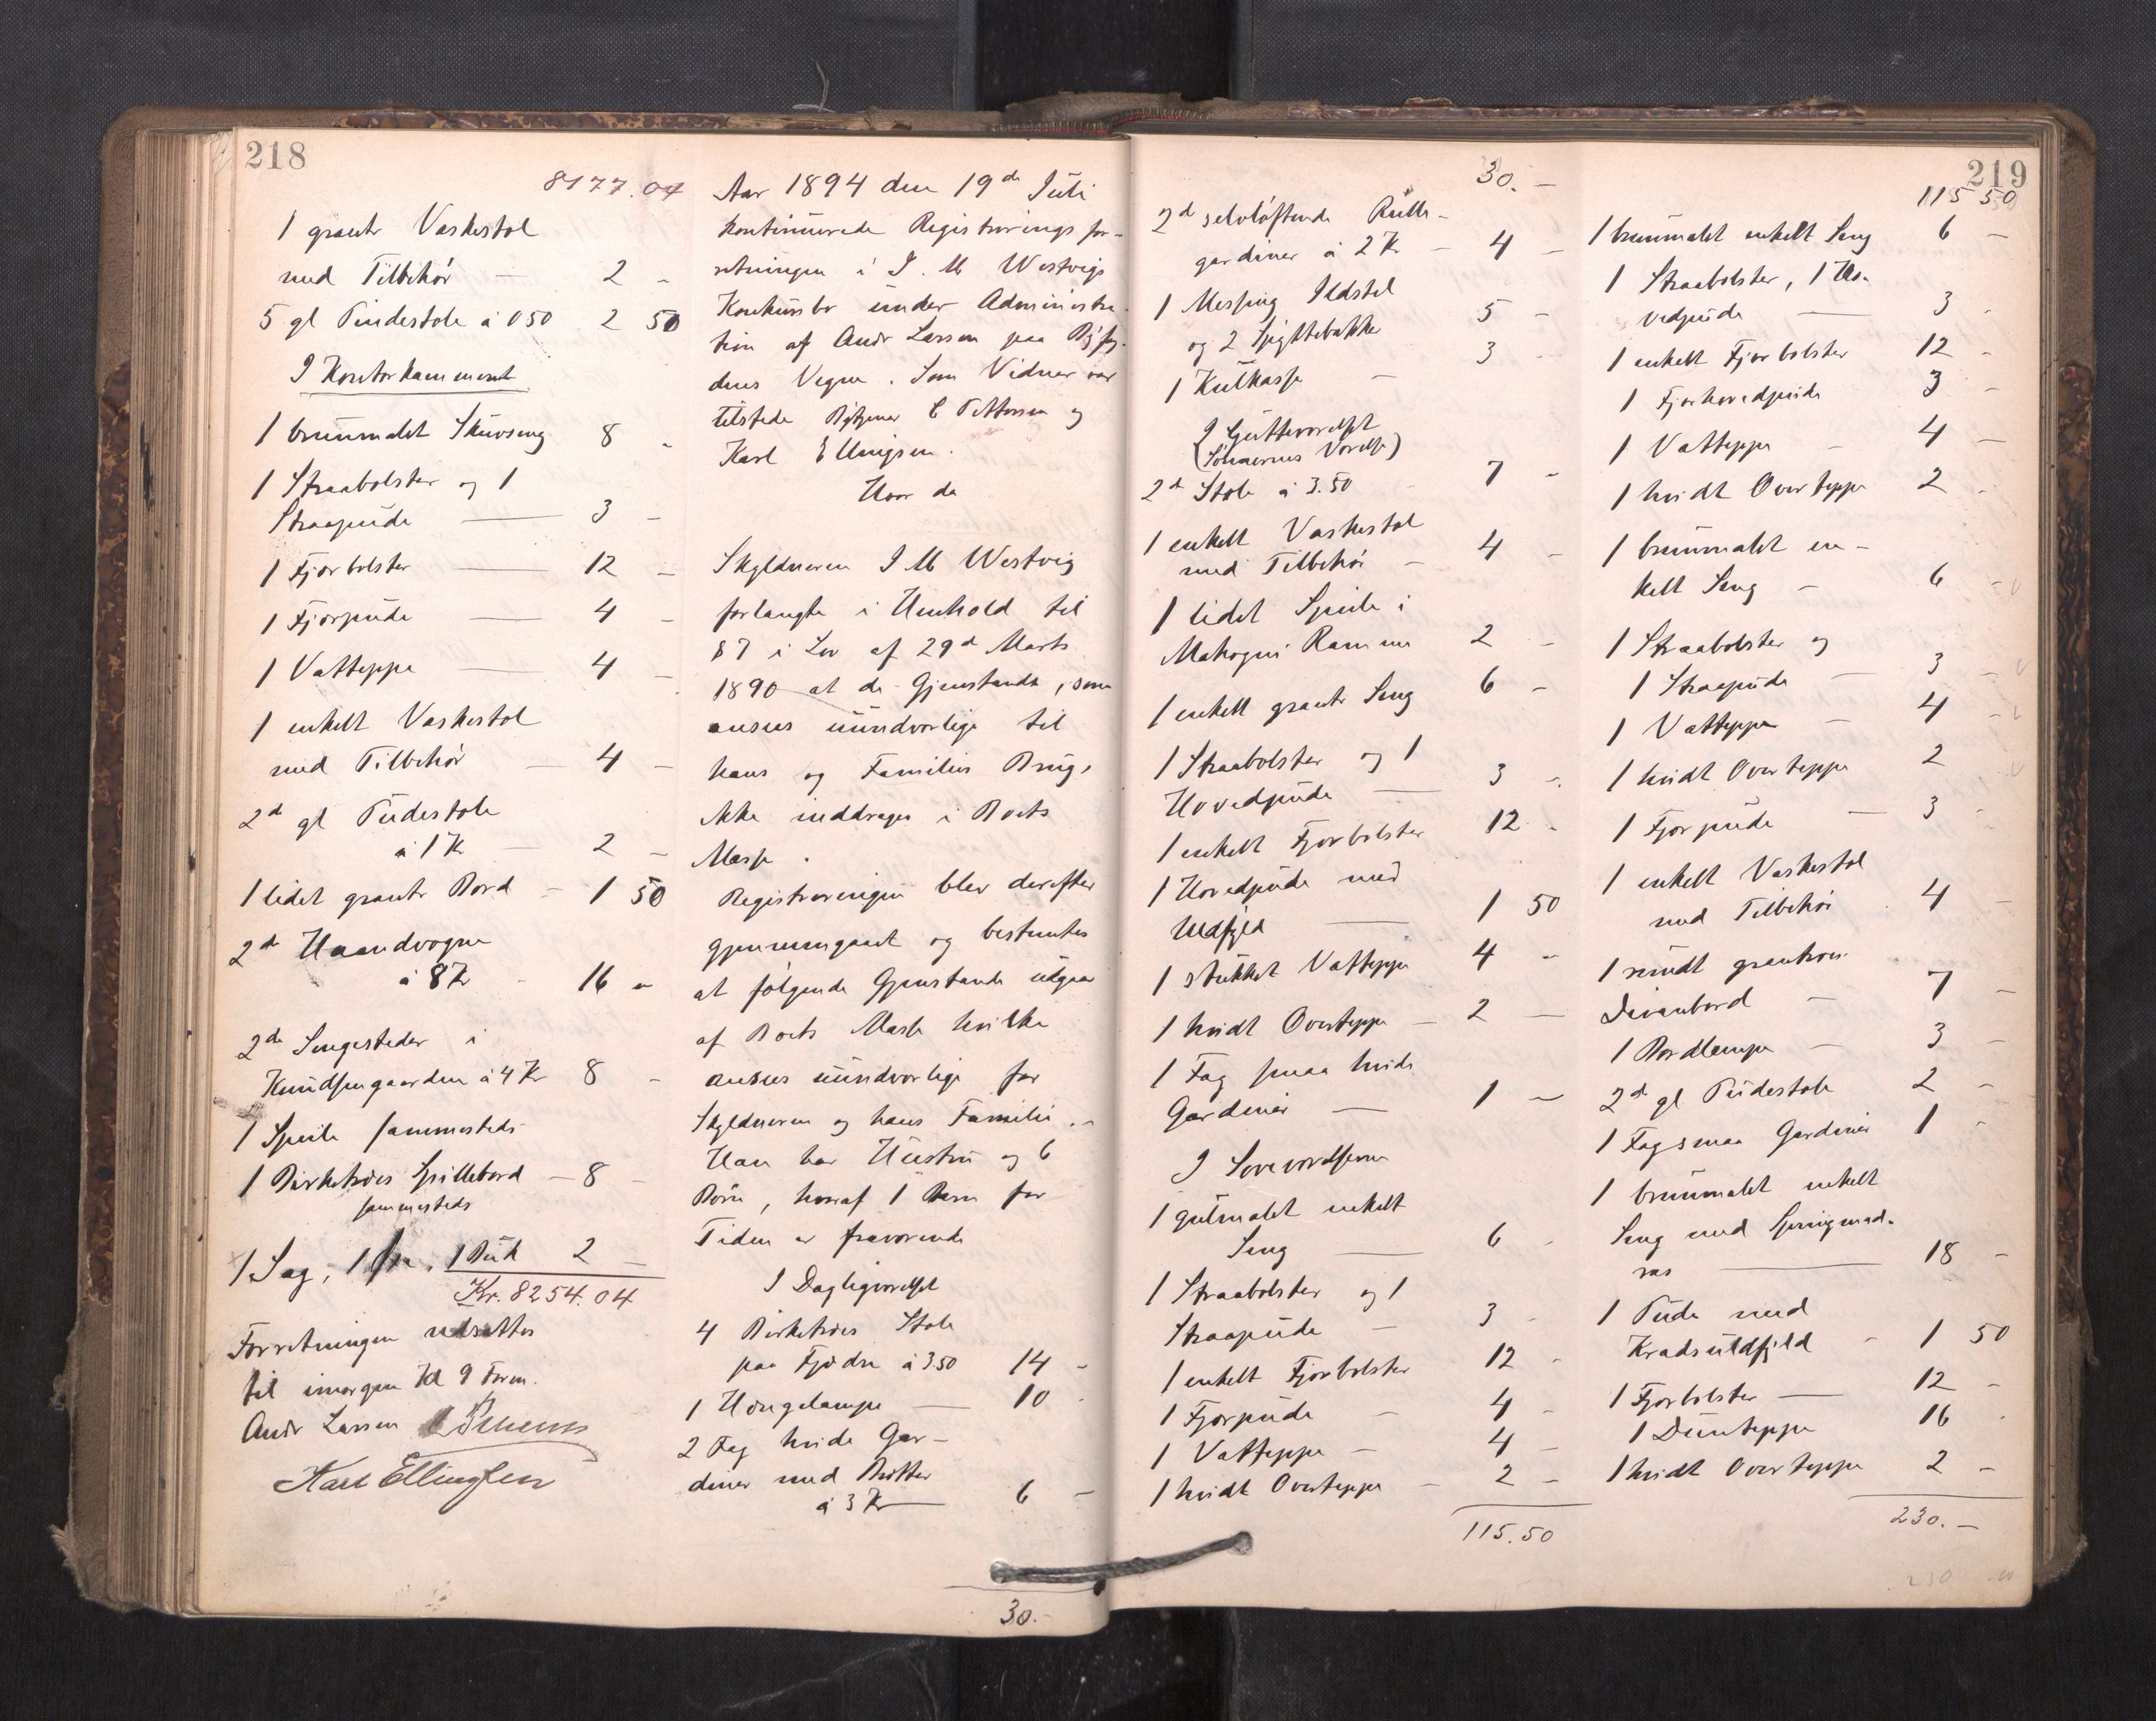 218
8177.04
1 graatr Vaskestol
med Tilbehör — 2 -
5 gl Pindestole à 0 50 2 50
I Kontorkammeret
1 brunmalet Skuvseng 8 -
1 Straabolster og 1
Straapude — 3 -
1 Fjærbolster — 12 -
1 Fjærpude — 4 -
1 Vatteppe — 4 -
1 enkelt Vaskestol
med Tilbehör — 4 -
2de gl Pindestole
à 1 Kr — 2 -
1 lidet graatr Bord - 1 50
2de Haandvogne
à 8 Kr - 16 -
2de Sengesteder i
Knudsengaarden à 4 Kr 8 -
1 Speile sammesteds
1 Birketræes Spillebord — 8 -
sammesteds
1 Sag, 1 , 1 Buk 2 -
Kr. 8254.04
Forretningen udsattes
til imorgen Kl 9 Form.
Andr Larsen
Karl Ellingsen
Aar 1894 den 19de Juli
kontinuerede Registreringsfor-
retningen i I. M Westvigs
Konkursbo under Administra-
tion af Andr Larsen paa Byfog-
dens Vegne. Som Vidner var
tilstede C Pettersen og
Karl Ellingsen.
Hvor da
Skyldneren I M Westvig
forlangte i Henhold til
§ 7 i Lov af 29de Marts
1890 at de Gjenstande, som
ansees uundværlige til
hans og Families Brug,
ikke inddrages i Boets
Masse.
Registreringen blev derefter
gjennemgaaet og bestemtes
at følgende Gjenstande udgaar
af Boets Masse hvilke
ansees uundværlige for
Skyldneren og hans Familie. -
Han har Hustru og 6
Börn, hvoraf 1 Barn for
Tiden er fraværende
I Dagligværelset
4 Birketræes Stole
paa Fjædre à 3 50 14 -
1 Hængelampe — 10 -
2 Fag hvide Gar-
diner med Britter
à 3 Kr — 6 -
30.-
219
30. -
2de selvløftende Rulle-
gardiner à 2 Kr - 4 -
1 Messing Ildstel
og 2 Spyttebakker 5 -
1 Kulkasse - 3 -
I Gjutteværelset
(Sönnernes Værelse)
2de Stole à 3.50 - 7 -
1 enkelt Vaskestol
med Tilbehör - 4 -
1 lidet Speile i
Mahogni Ramme 2 -
1 enkelt graatr Seng 6 -
1 Straabolster og 1
Hovedpude — 3 -
1 enkelt Fjærbolster 12 -
1 Hovedpude med
Uldfyld — 1 50
1 stukket Vatteppe 4 -
1 hvidt Overteppe — 2 -
1 Fag smaa hvide
Gardiner — 1 -
I Soveværelserne
1 gulmalet enkelt
Seng — 6 -
1 Straabolster og 1
Straapude — 3 -
1 enkelt Fjærbolster 12 -
1 Fjærpude - 4 -
1 Vatteppe - 4 -
1 hvidt Overteppe - 2 -
115.50
115 50
1 brunmalet enkelt Seng 6 -
1 Straabolster, 1 Ho-
vedpude — 3 -
1 enkelt Fjærbolster 12 -
1 Fjærhovedpude 3 -
1 Vatteppe - 4 -
1 hvidt Overteppe 2 -
1 brunmalet en-
kelt Seng - 6 -
1 Straabolster og
1 Straapude - 3 -
1 Vatteppe - 4 -
1 hvidt Overteppe 2
1 Fjærpude — 3 -
1 enkelt Vaskestol
med Tilbehör 4 -
1 rundt grantræs
Divanbord - 7 -
1 Bordlampe - 3 -
2de gl Pindestole 2 -
1 Fag smaa Gardiner 1 -
1 brunmalet enkelt
Seng med Springmad-
ras — 18 -
1 Pude med
Kradsuldfyld - 1 50
1 Fjærbolster — 12 -
1 Dunteppe 16 -
1 hvidt Overteppe 2 -
230. -